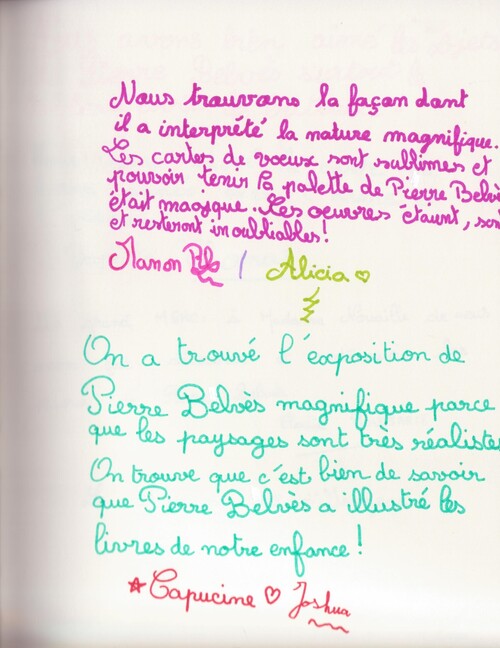 Nous trouvons la façon dont
il a interprété la nature magnifique.
Les cartes de voeux sont sublimes et
pouvoir tenir la palette de Pierre Belvès
était magique. Les oeuvres étaient, son
et resteront inoubliables!
Manon / Alicia ♡
On a trouvé l'éxposition de
Pierre Belvès magnifique parce
que les paysages sont très réalistes
On trouve que c'est bien de savoir
que Pierre Belvès a illustré les
livres de notre enfance!
★Capucine ♡ Joshua